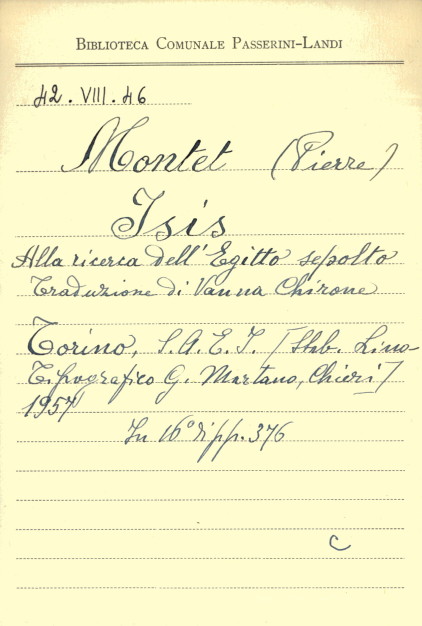 BIBLIOTECA COMUNALE PASSERINI-LANDI
42. VIII. 46
Montet (Pierre)
Isis
Alla ricerca dell'Egitto sepolto
Traduzione di Vanna Chirone
Torino, S.A.E.I. [Stab. Lino-
Tipografico G. Martano, Chieri]
1957
In 16° di pp. 376
C